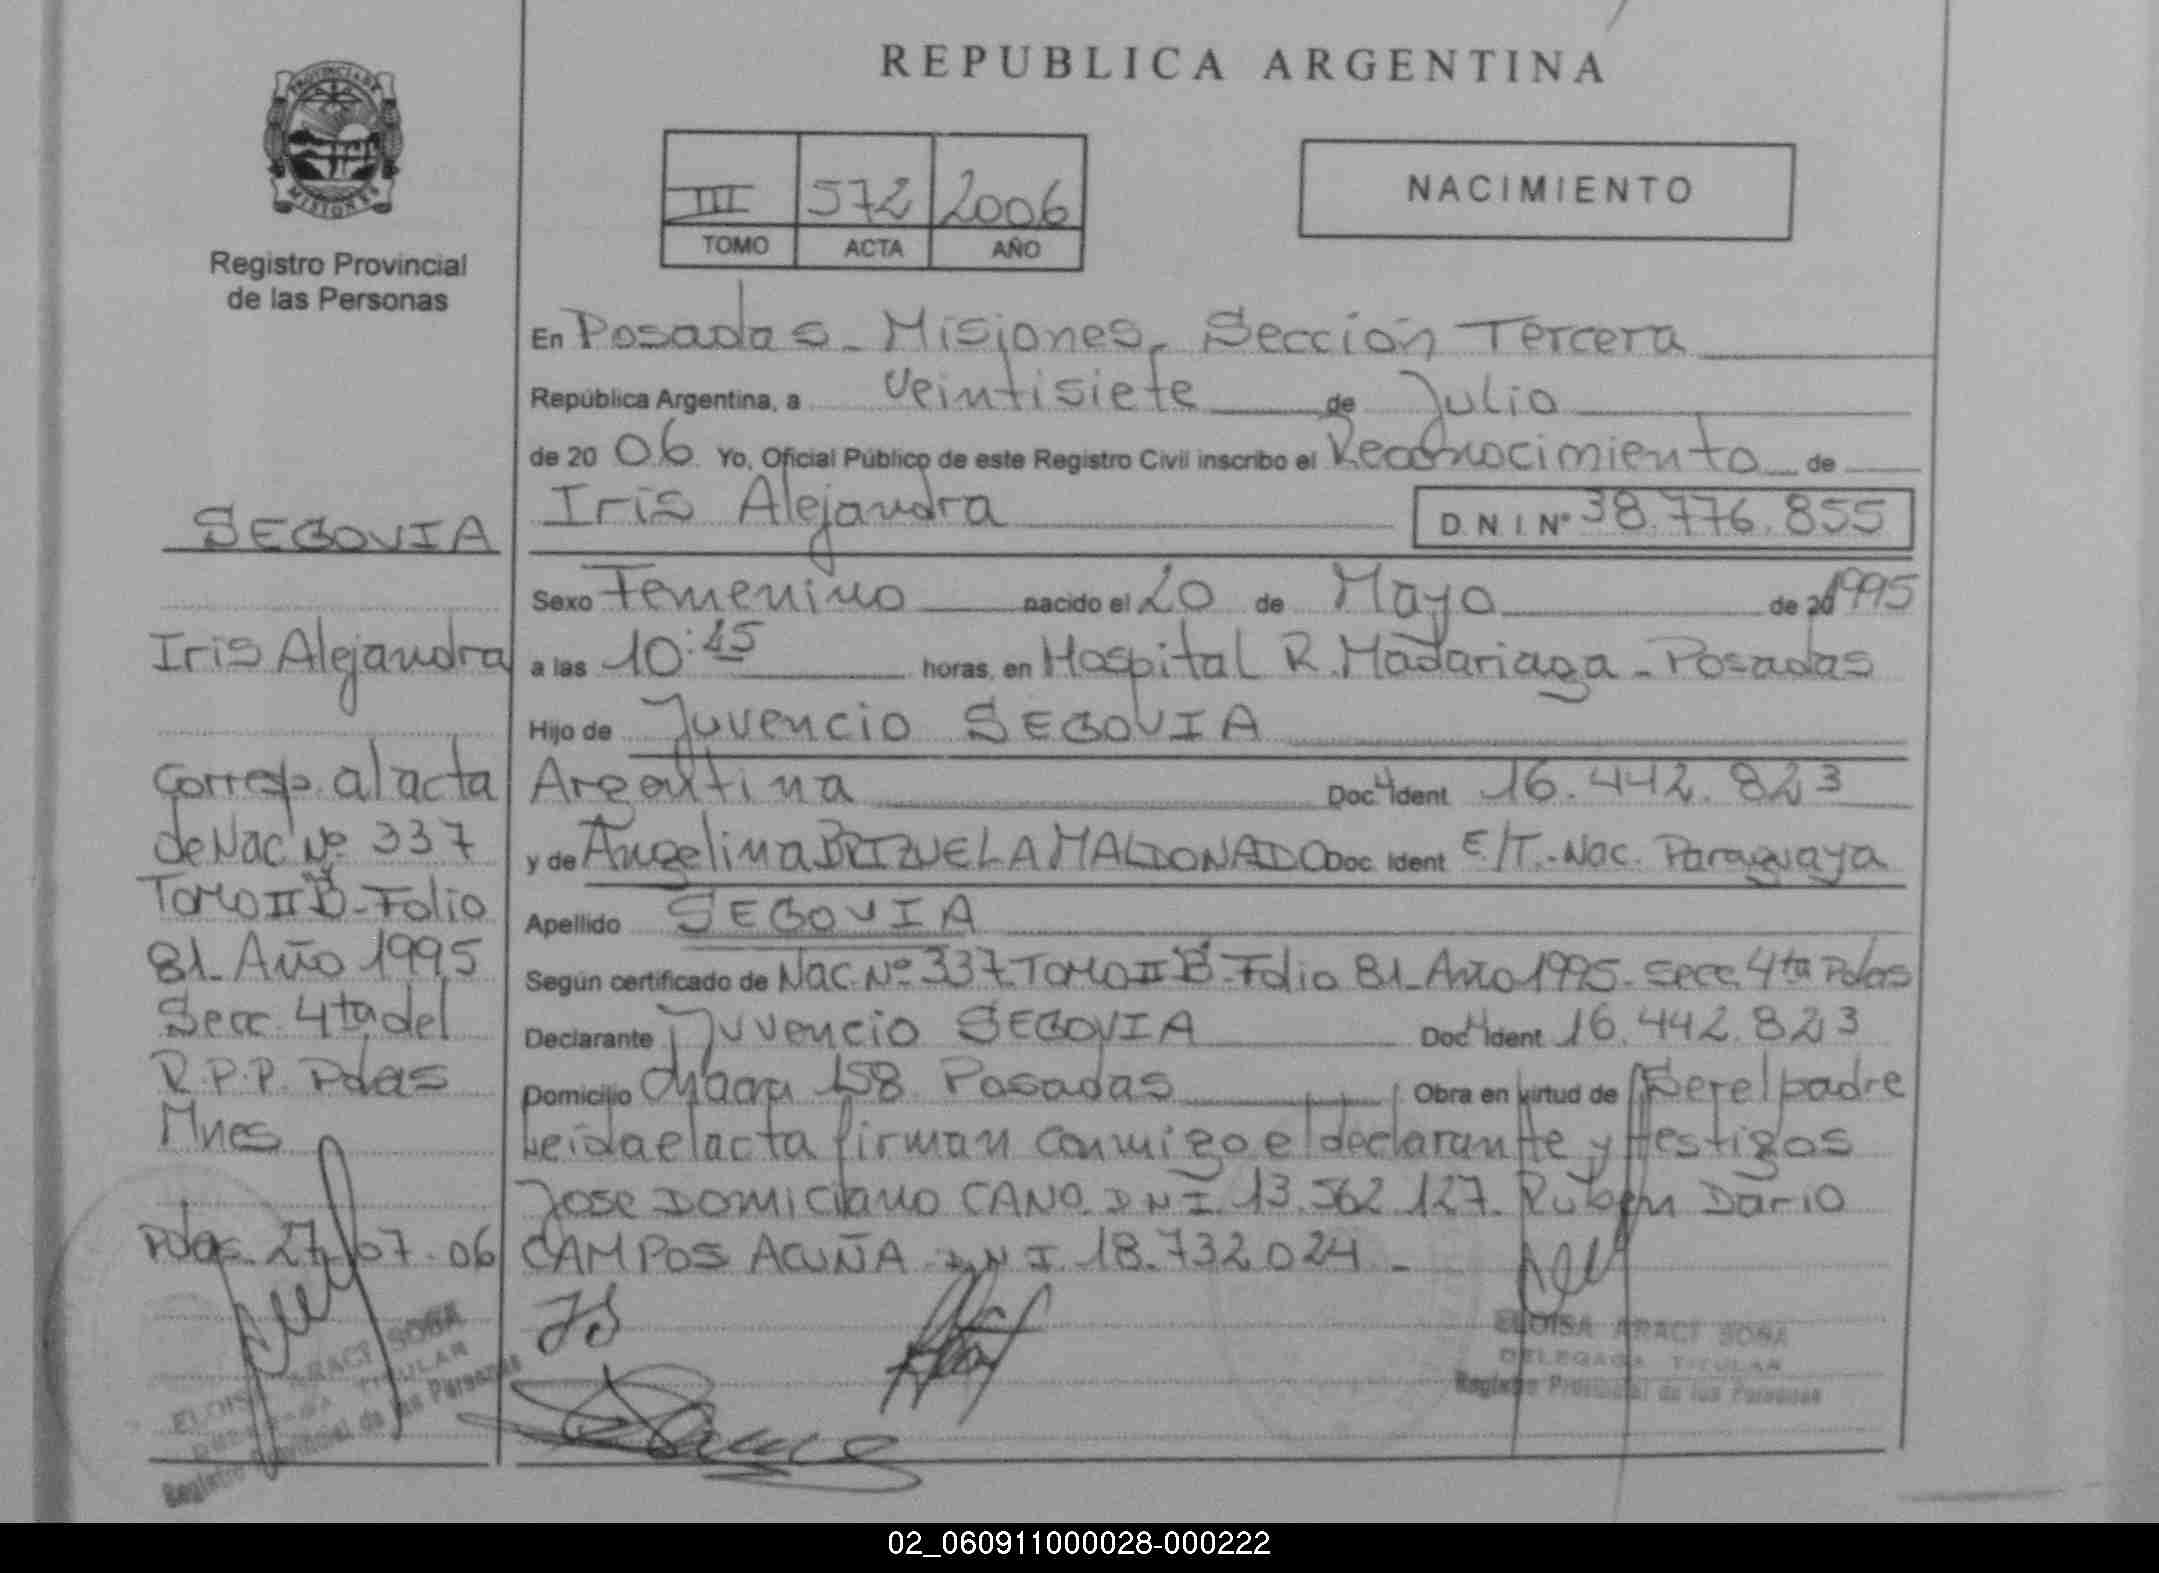 REPUBLICA ARGENTINA
PROVINCIA DE
MISIONES
Registro Provincial
de las Personas
III 572 2006
TOMO ACTA AÑO
NACIMIENTO
En Posadas - Misiones. Sección Tercera
República Argentina, a veintisiete de Julio
de 20 06 Yo, Oficial Público de este Registro Civil inscribo el Reconocimiento de
Iris Alejandra D.N.I. Nº 38.776.855
Sexo Femenino nacido el 20 de Mayo de 20 1995
a las 10:45 horas, en Hospital R. Madariaga - Posadas
Hijo de Juvencio SEGOVIA
Argentina Doc. Ident 16.442.823
y de Angelina BRIZUELA MALDONADO Doc. Ident E/T.-Nac. Paraguaya
Apellido SEGOVIA
Según certificado de Nac. Nº 337 Tomo II B - Folio 81 - Año 1995 - Secc. 4ta Pdas
Declarante Juvencio SEGOVIA Doc. Ident 16.442.823
Domicilio Chacra 158 Posadas Obra en virtud de Ser el padre
Leida el acta firman conmigo el declarante y testigos
Jose Domiciano CANO. DNI. 13.562.127. Ruben Dario
CAMPOS ACUÑA DNI. 18.732.024 -
ELOISA ARACI SOSA
DELEGADA TITULAR
Registro Provincial de las Personas
SEGOVIA
Iris Alejandra
Corresp. al acta
de Nac Nº 337
Tomo II B - Folio
81 - Año 1995
Secc. 4ta del
R.P.P. Pdas
Mnes
Pdas. 27-07-06
ELOISA ARACI SOSA
DELEGADA TITULAR
Registro Provincial de las Personas
02_060911000028-000222